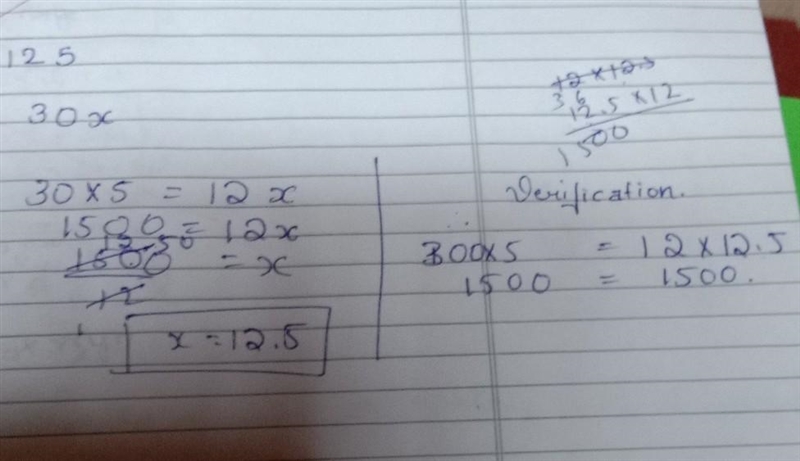 125
30x
30 × 5 = 12 x
1500 = 12x
1500 = x
12
x = 12.5
12 × 12.5
36
12.5 × 12
1500
Verification.
300×5 = 12 × 12.5
1500 = 1500.